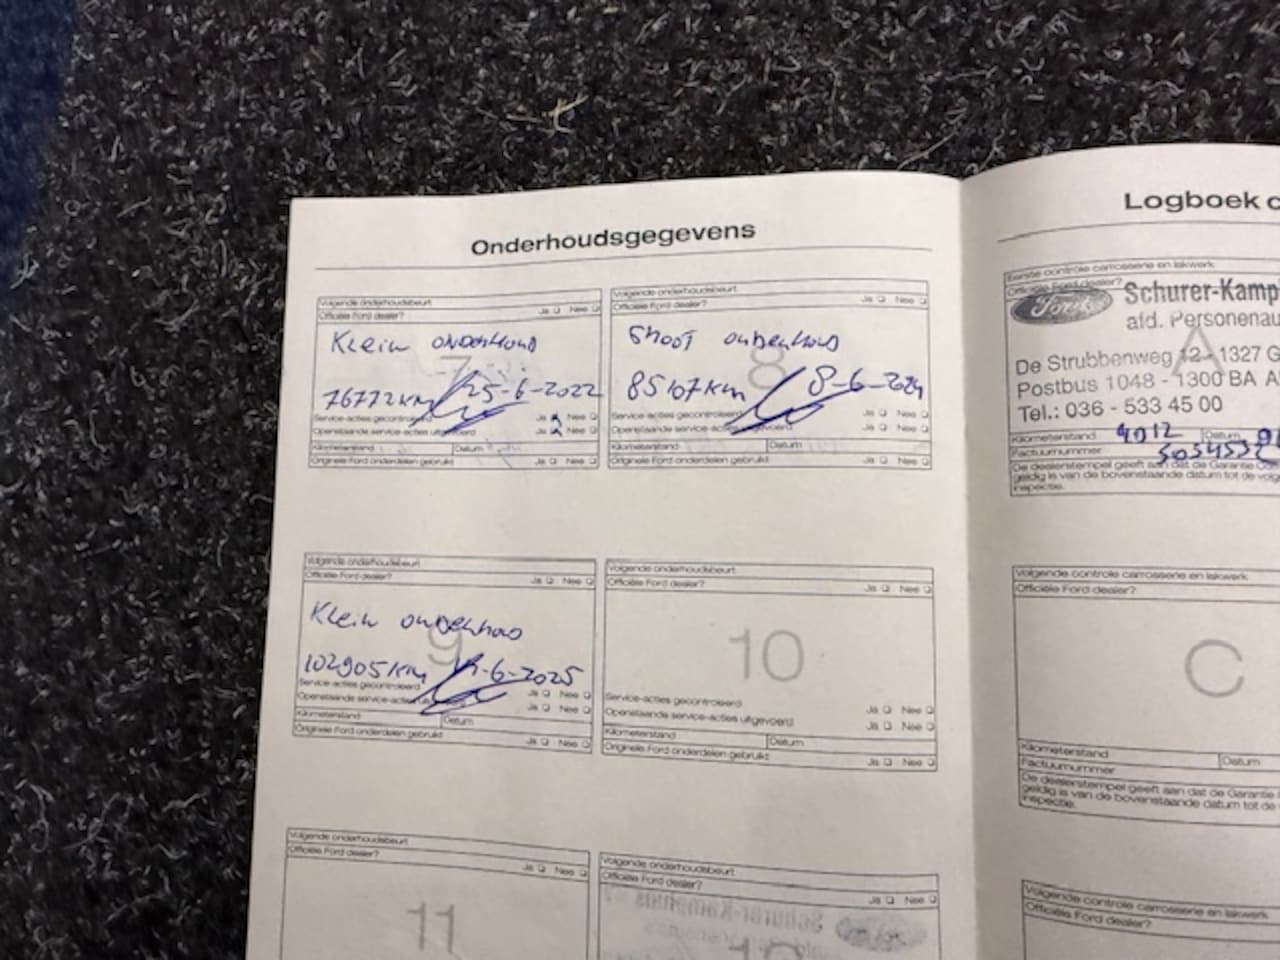 Onderhoudsgegevens
Volgende onderhoudsbeurt
Officiële Ford dealer? Ja Nee
7
Klein onderhoud
76772 km 25-6-2022
Service-acties gecontroleerd Ja Nee
Openstaande service-acties uitgevoerd Ja Nee
Kilometerstand Datum
Originele Ford onderdelen gebruikt Ja Nee
Volgende onderhoudsbeurt
Officiële Ford dealer? Ja Nee
8
Groot onderhoud
85107 km 8-6-2024
Service-acties gecontroleerd Ja Nee
Openstaande service-acties uitgevoerd Ja Nee
Kilometerstand Datum
Originele Ford onderdelen gebruikt Ja Nee
Volgende onderhoudsbeurt
Officiële Ford dealer? Ja Nee
9
Klein onderhoud
102905 km -6-2025
Service-acties gecontroleerd Ja Nee
Openstaande service-acties Ja Nee
Kilometerstand Datum
Originele Ford onderdelen gebruikt Ja Nee
Volgende onderhoudsbeurt
Officiële Ford dealer? Ja Nee
10
Service-acties gecontroleerd Ja Nee
Openstaande service-acties uitgevoerd Ja Nee
Kilometerstand Datum
Originele Ford onderdelen gebruikt Ja Nee
Volgende onderhoudsbeurt
Officiële Ford dealer? Ja Nee
11
Volgende onderhoudsbeurt
Officiële Ford dealer? Ja Nee
Logboek c
Eerste controle carrosserie en lakwerk
Officiële Ford dealer?
Ford
Schurer-Kamp
afd. Personenau
A
De Strubbenweg 12 - 1327 G
Postbus 1048 - 1300 BA A
Tel.: 036 - 533 45 00
Kilometerstand 9012 Datum
Factuurnummer
De dealerstempel geeft aan dat de Garantie
geldig is van de bovenstaande datum tot de volg
inspectie.
Volgende controle carrosserie en lakwerk
Officiële Ford dealer?
C
Kilometerstand Datum
Factuurnummer
De dealerstempel geeft aan dat de Garantie
geldig is van de bovenstaande datum tot de
inspectie.
Volgende controle carrosserie en lakwerk
Officiële Ford dealer?